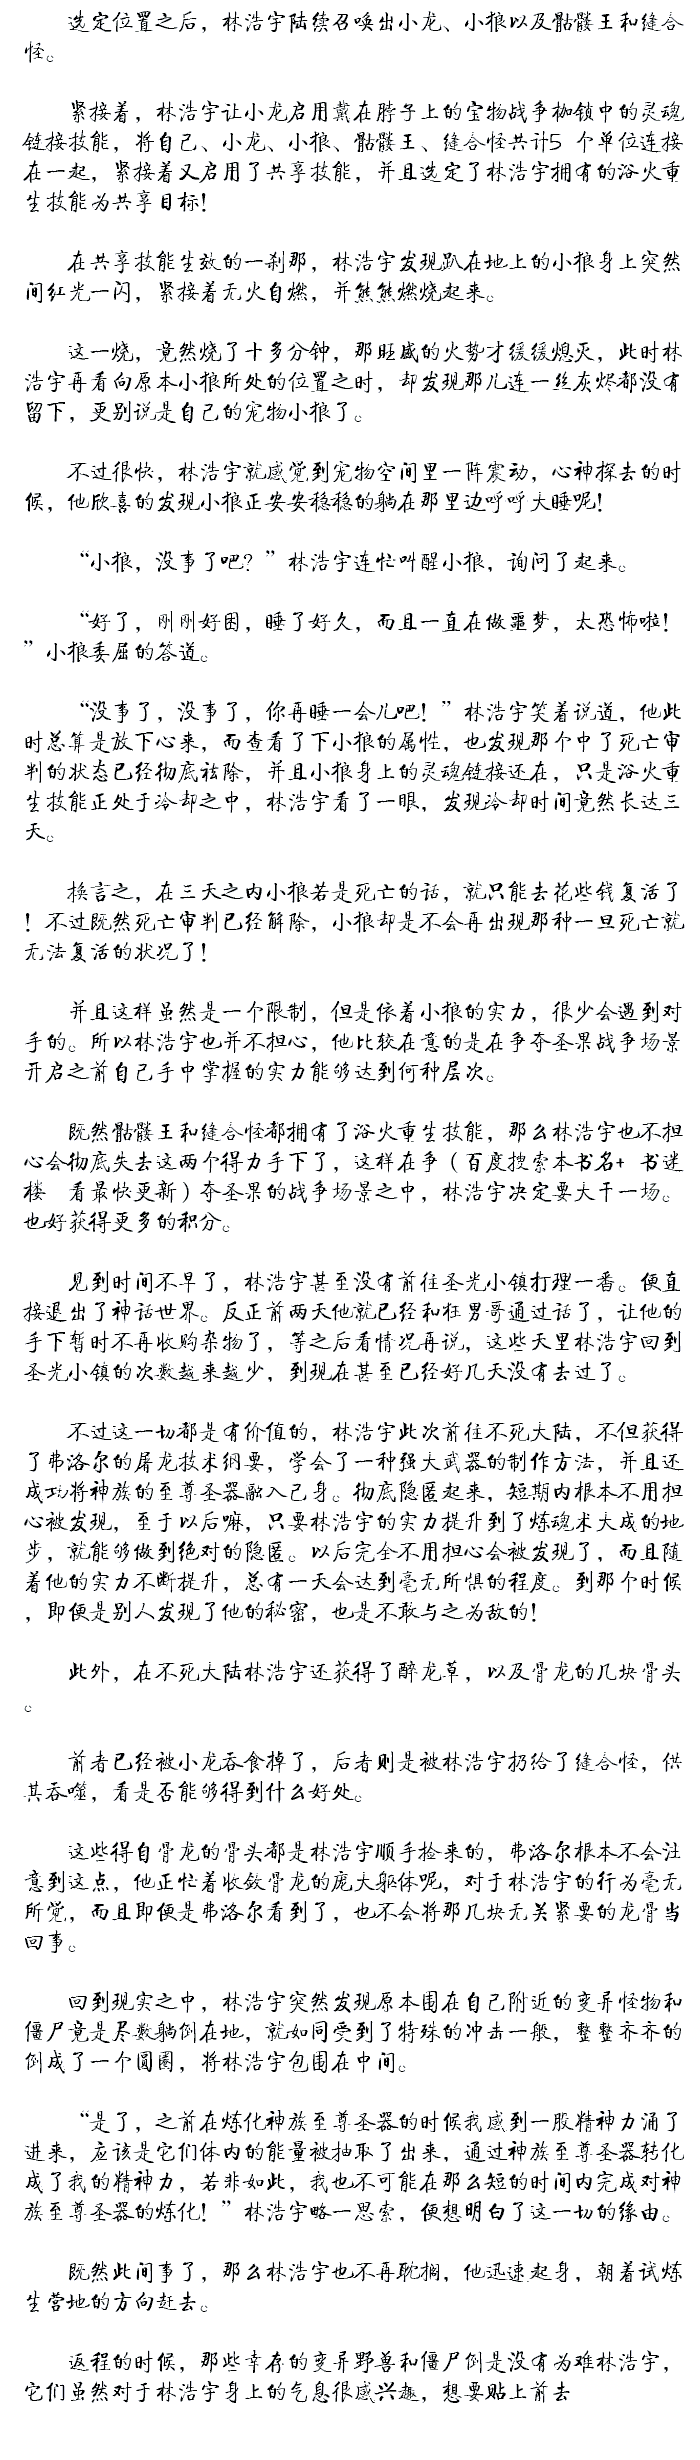 选定位置之后，林浩宇陆续召唤出小龙、小狼以及骷髅王和缝合
怪。
紧接着，林浩宇让小龙启用戴在脖子上的宝物战争枷锁中的灵魂
链接技能，将自己、小龙、小狼、骷髅王、缝合怪共计5 个单位连接
在一起，紧接着又启用了共享技能，并且选定了林浩宇拥有的浴火重
生技能为共享目标！
在共享技能生效的一刹那，林浩宇发现趴在地上的小狼身上突然
间红光一闪，紧接着无火自燃，并熊熊燃烧起来。
这一烧，竟然烧了十多分钟，那旺盛的火势才缓缓熄灭，此时林
浩宇再看向原本小狼所处的位置之时，却发现那儿连一丝灰烬都没有
留下，更别说是自己的宠物小狼了。
不过很快，林浩宇就感觉到宠物空间里一阵震动，心神探去的时
候，他欣喜的发现小狼正安安稳稳的躺在那里边呼呼大睡呢！
“小狼，没事了吧？”林浩宇连忙叫醒小狼，询问了起来。
“好了，刚刚好困，睡了好久，而且一直在做噩梦，太恐怖啦！
”小狼委屈的答道。
“没事了，没事了，你再睡一会儿吧！”林浩宇笑着说道，他此
时总算是放下心来，而查看了下小狼的属性，也发现那个中了死亡审
判的状态已经彻底祛除，并且小狼身上的灵魂链接还在，只是浴火重
生技能正处于冷却之中，林浩宇看了一眼，发现冷却时间竟然长达三
天。
换言之，在三天之内小狼若是死亡的话，就只能去花些钱复活了
！不过既然死亡审判已经解除，小狼却是不会再出现那种一旦死亡就
无法复活的状况了！
并且这样虽然是一个限制，但是依着小狼的实力，很少会遇到对
手的。所以林浩宇也并不担心，他比较在意的是在争夺圣果战争场景
开启之前自己手中掌握的实力能够达到何种层次。
既然骷髅王和缝合怪都拥有了浴火重生技能，那么林浩宇也不担
心会彻底失去这两个得力手下了，这样在争（百度搜索本书名+ 书迷
楼 看最快更新）夺圣果的战争场景之中，林浩宇决定要大干一场。
也好获得更多的积分。
见到时间不早了，林浩宇甚至没有前往圣光小镇打理一番。便直
接退出了神话世界。反正前两天他就已经和狂男哥通过话了，让他的
手下暂时不再收购杂物了，等之后看情况再说，这些天里林浩宇回到
圣光小镇的次数越来越少，到现在甚至已经好几天没有去过了。
不过这一切都是有价值的，林浩宇此次前往不死大陆，不但获得
了弗洛尔的屠龙技术纲要，学会了一种强大武器的制作方法，并且还
成功将神族的至尊圣器融入己身。彻底隐匿起来，短期内根本不用担
心被发现，至于以后嘛，只要林浩宇的实力提升到了炼魂术大成的地
步，就能够做到绝对的隐匿。以后完全不用担心会被发现了，而且随
着他的实力不断提升，总有一天会达到毫无所惧的程度。到那个时候
，即便是别人发现了他的秘密，也是不敢与之为敌的！
此外，在不死大陆林浩宇还获得了醉龙草，以及骨龙的几块骨头
。
前者已经被小龙吞食掉了，后者则是被林浩宇扔给了缝合怪，供
其吞噬，看是否能够得到什么好处。
这些得自骨龙的骨头都是林浩宇顺手捡来的，弗洛尔根本不会注
意到这点，他正忙着收敛骨龙的庞大躯体呢，对于林浩宇的行为毫无
所觉，而且即便是弗洛尔看到了，也不会将那几块无关紧要的龙骨当
回事。
回到现实之中，林浩宇突然发现原本围在自己附近的变异怪物和
僵尸竟是尽数躺倒在地，就如同受到了特殊的冲击一般，整整齐齐的
倒成了一个圆圈，将林浩宇包围在中间。
“是了，之前在炼化神族至尊圣器的时候我感到一股精神力涌了
进来，应该是它们体内的能量被抽取了出来，通过神族至尊圣器转化
成了我的精神力，若非如此，我也不可能在那么短的时间内完成对神
族至尊圣器的炼化！”林浩宇略一思索，便想明白了这一切的缘由。
既然此间事了，那么林浩宇也不再耽搁，他迅速起身，朝着试炼
生营地的方向赶去。
返程的时候，那些幸存的变异野兽和僵尸倒是没有为难林浩宇，
它们虽然对于林浩宇身上的气息很感兴趣，想要贴上前去